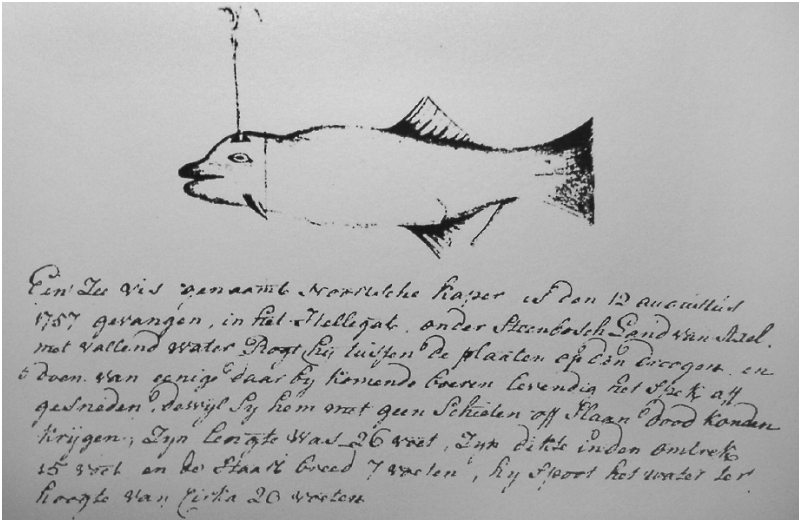 Een Zee vis genaamt Noortsche kaper is den 12 augustus
1757 gevangen, in het Hellegat, onder Steenbosch Land van Axel.
met vallend water Rogt hij tussen de plaaten op den droogen en
doen van eenige daar by komende boeren levendig het Spek aff
gesneden, dewijl Sy hem met geen Schieten off Slaan dood konden
krijgen, Zyn lengte was 26 voet, Zyn dikte in den omtrek
15 voet en de Staart breed 7 voeten, hy Spoot het water ter
hoogte van Cirka 20 voeten